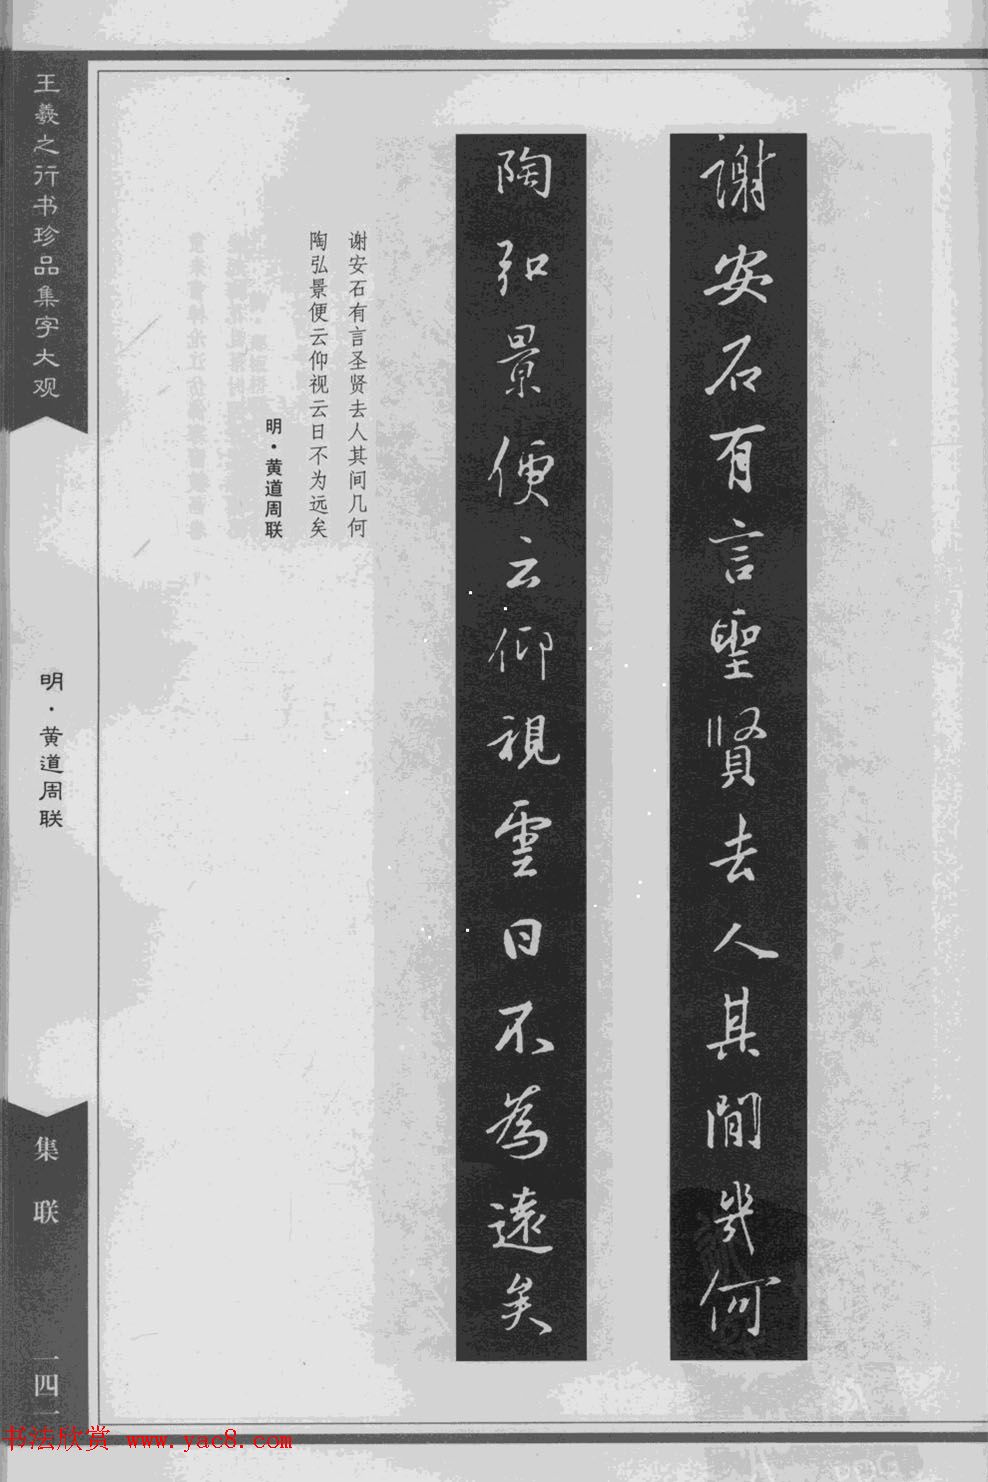 謝安石有言聖賢去人其間幾何
陶弘景便云仰視雲日不為遠矣
谢安石有言圣贤去人其间几何
陶弘景便云仰视云日不为远矣
明·黄道周联
王羲之行书珍品集字大观
明·黄道周联
集联
一四一
书法欣赏 www.yac8.com